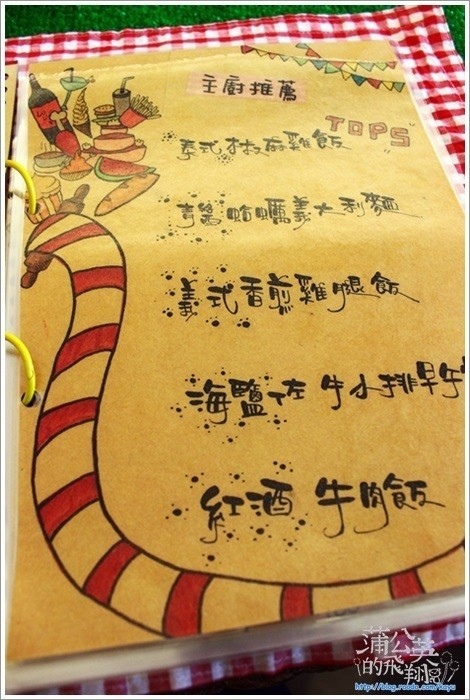 主廚推薦
TOPS
泰式椒麻雞飯
青醬蛤蠣義大利麵
義式香煎雞腿飯
海鹽佐牛小排早午
紅酒牛肉飯
蒲公英的飛翔